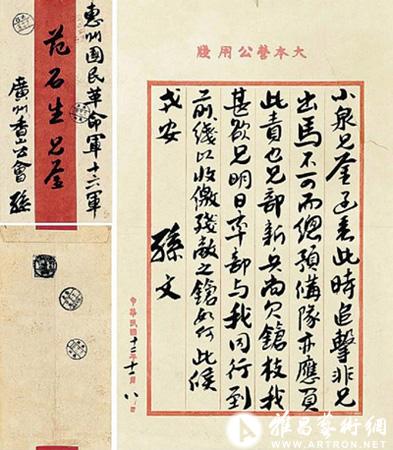 惠州國民革命軍十六軍
范石生兄鑒
廣州香山公會 孫
大本營公用牋
小泉兄鑒函悉此時追擊非兄
出馬不可而總預備隊亦應負
此責也兄部新兵尚欠鎗枝我
甚欲兄明日率部與我同行到
前綫以收繳殘敵之鎗如何此候
戎安
孫文
中華民國十二年十一月八日
雅昌藝術網
WWW.ARTRON.NET